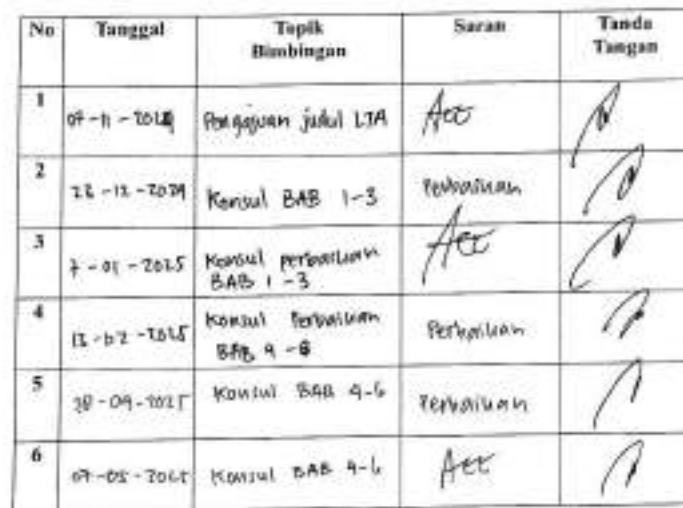 No Tanggal Topik Bimbingan Saran Tanda Tangan
1 07-11-2024 Pengajuan judul LTA Acc
2 -12-2024 Konsul BAB 1-3 Perbaikan
3 7-01-2025 Konsul perbaikan BAB 1-3 Acc
4 13-02-2025 Konsul Perbaikan BAB 4-6 Perbaikan
5 -04-2025 Konsul BAB 4-6 Perbaikan
6 07-05-2025 Konsul BAB 4-6 Acc